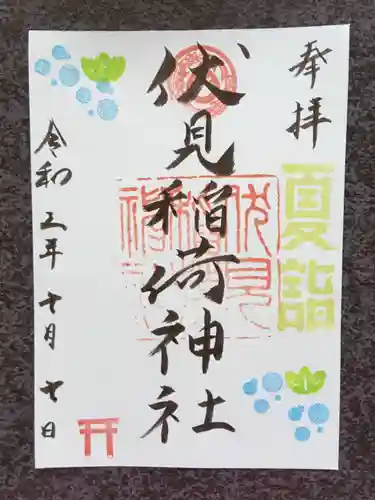 奉拝
夏詣
伏見稲荷神社
令和三年七月七日